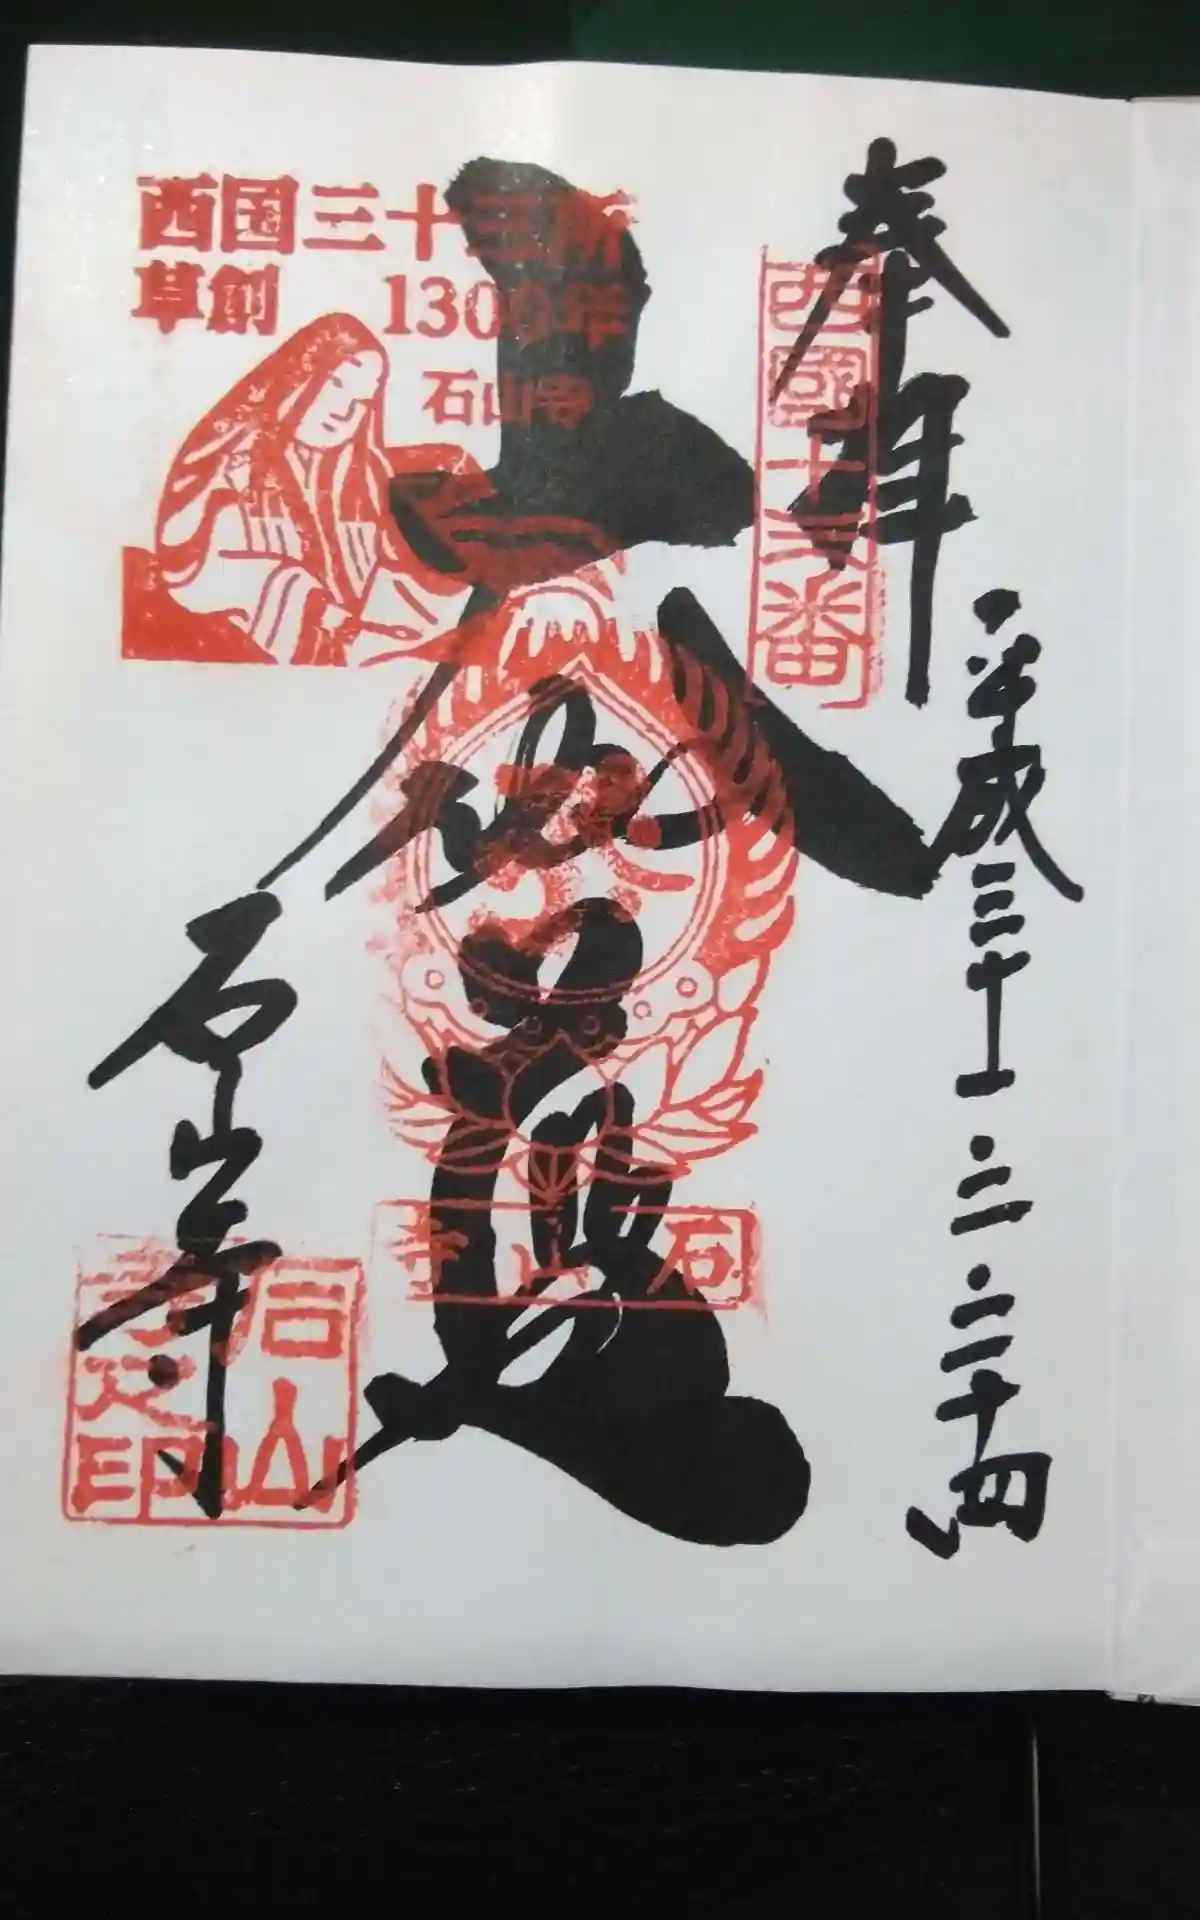 奉拝
西國十三番
平成三十一・二・二十四
西国三十三所
草創 1300年
石山寺
大伽藍
石山寺
石山寺
石山寺之印